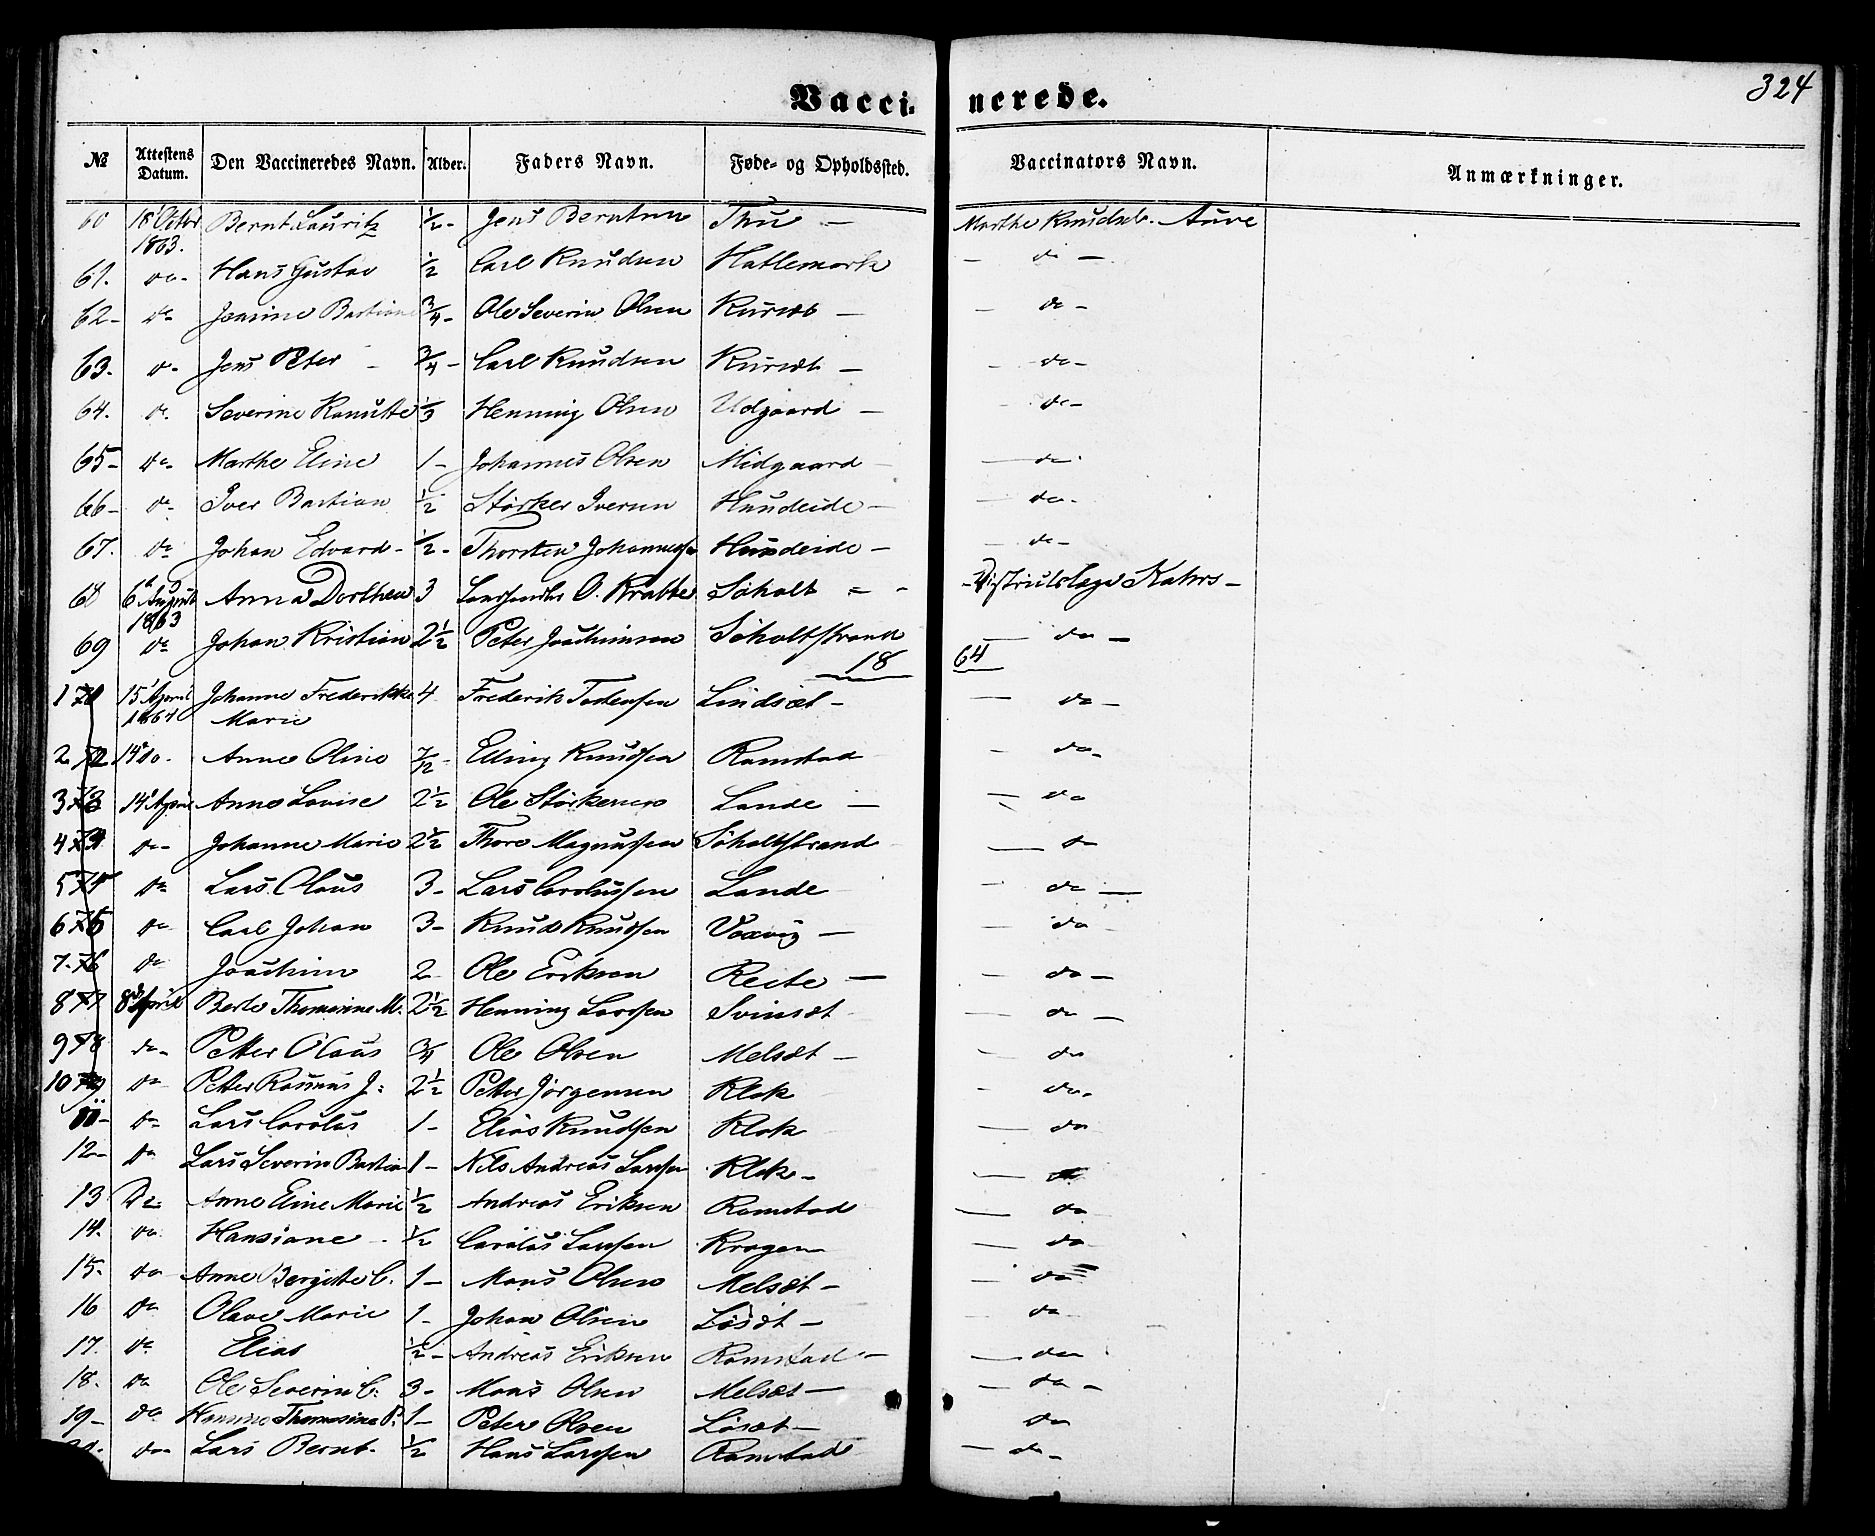 324
Vacci- nerede.
№ Attestens Datum. Den Vaccineredes Navn. Alder. Faders Navn. Føde- og Opholdssted. Vaccinators Navn. Anmærkninger.
60 18 Octbr 1863. Bernt Lauritz ½- Jens Berntsen Thu — Marthe Knudsd. Aure
61. do- Hans Gustav ½ Carl Knudsen Hatlemark — do —
62- do Jensine Bastiane ¾- Ole Severin Olsen Kursæt — — do -
63. do- Jens Peter - ¾- Carl Knudsen Kursæt — - do-
64. do. Severine Kanutte ⅓ Henning Olsen Udgaard — - do-
65- do- Marthe Eline 1- Johannes Olsen Midgaard - — do-
66- do- Iver Bastian ½ Størker Iversen Hundeide - — do-
67. do Johan Edvard- ½- Thorsten Johannessen Hundeide - — do-
68 6 August 1863 Anna Dorthea 3 O. Krabbe Søholt = - - Distriktslæge Kahrs -
69 do Johan Kristian 2½ Peter Joachimsen Søholtstrand — do —
18 64
1 15 April 1864 Johanne Frederikke Marie 4 Frederik Tostensen Lindsæt - — do -
2 14 do. Anne Oline 7/12- Elling Knudsen Ramstad - do-
3 14 April Anne Lovise 2½ Ole Størkersen Lande — — do
4 do- Johanne Marie 2½ Thore Magnussen Søholtstrand — do
5 do Lars Olaus 3- Lars Carolussen Lande - do —
6 do Carl Johan 3- Knud Knudsen Vaxvig — - do -
7. do Joachim 2 Ole Eriksen Reite — — do -
8 8 April Berte Thomasine M. 2½ Henning Larssen Svinsæt — do —
9 do- Petter Olaus ¾ Ole Olsen Melsæt - — do
10 do Petter Rasmus J: 2½ Petter Jørgensen Klok - do-
11- do- Lars Carolus 1- Elias Knudsen Klok — do
12- do Lars Severin Bastian 1- Nils Andreas Larssen Klok- — do
13 Do Anne Eline Marie ½ Andreas Eriksen Ramstad — do
14. do Hansiane - ½ Carolus Larssen Kragen — do
15. do Anne Bergitte C. 1- Mons Olsen Melsæt- — do
16 do Olave Marie 1- Johan Olsen Løsæt- do
17. do Elias ½- Andreas Eriksen Ramstad- — do
18. do Ole Severin C. 3- Mons Olsen Melsæt — - do -
19- do Hanna Thomasine P. 1- Peter Olsen Løsæt- do
do- Lars Bernt- ½ Hans Larssen Ramstad — do -